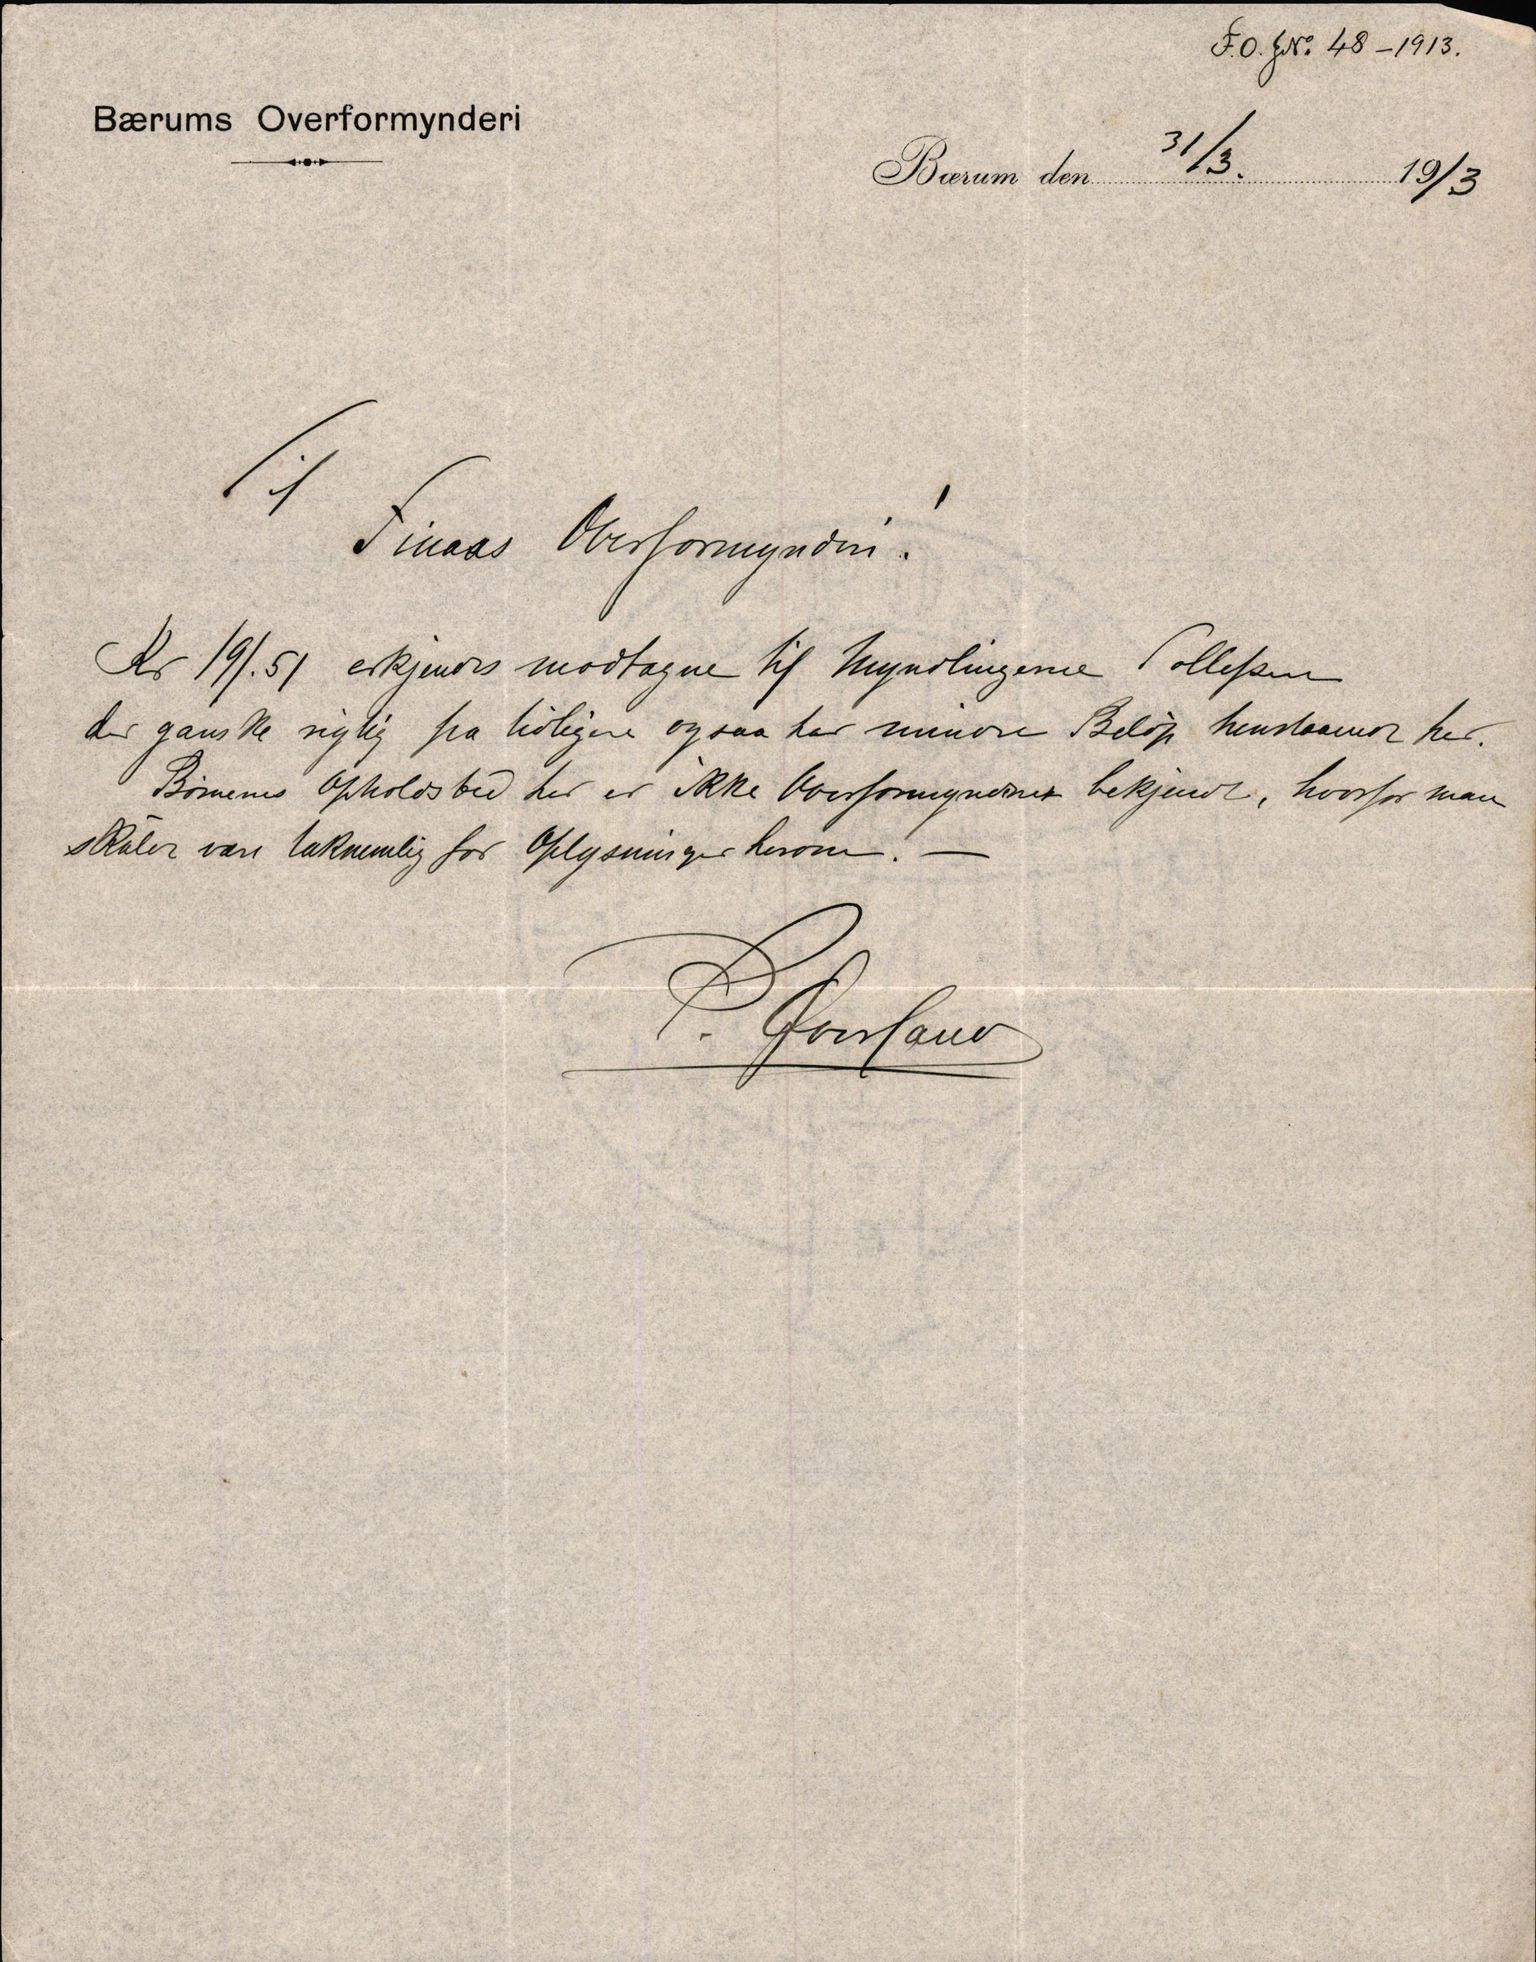 F.O. JNo. 48 – 1913.
Bærums Overformynderi
Bærum den 31/3. 1913
Til
Finaas Overformynderi!
Kr 191.51 erkjendes modtagne til Myndlingerne Tollefsen
der ganske rigtig fra tidligere ogsaa har mindre Beløp henstaaende her.
Børnenes Opholdsted her er ikke Overformynderiet bekjendt, hvorfor man
skulde være taknemlig for Oplysninger herom. —
P. Øverland